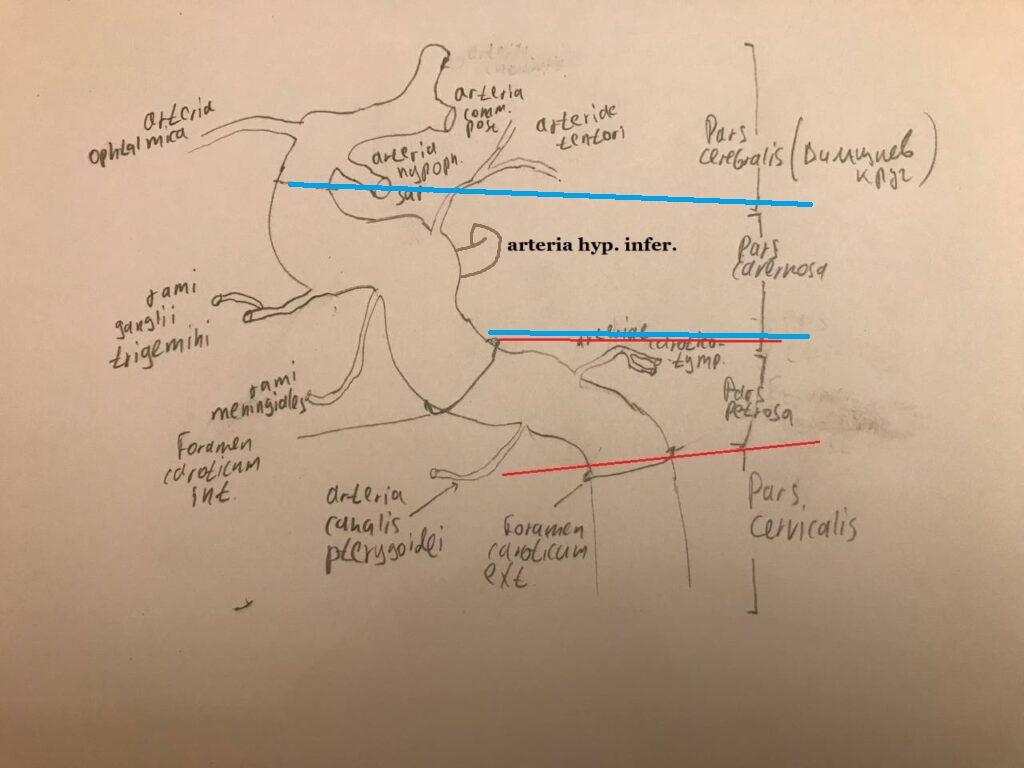 arteria
ophtalmica
arteria
comm.
post
arteriae
tentori
arteria
hypoph.
sup
Pars
cerebralis (Вилизиев
круг)
arteria hyp. infer.
Pars
cavernosa
rami
ganglii
trigemini
arteriae carotico-
tymp.
rami
meningiales
Pars
petrosa
Foramen
caroticum
int.
arteria
canalis
pterygoidei
Foramen
caroticum
ext.
Pars
cervicalis